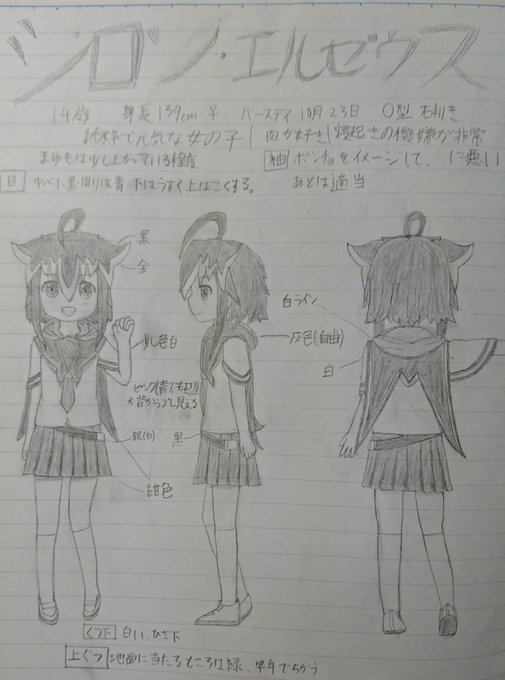 シロン・エルゼウス
14歳 身長139cm 早 バースデイ 10月23日 O型 右利き
純粋で元気な女の子 肉が好き 寝起きの機嫌が非常に悪い
まゆもは少し上がっている程度
袖 ポンチョをイメージして、
あとは適当
目 中心に黒・周りは青 下はうすく上はこくする。
黒
金
少し色白
白ライン
灰色(自由)
白
ピンク
※背から少し見える
銀(白)
黒
紺色
くつ下 白い、ひざ下
上ぐつ 地面に当たるところは緑、学年でちがう